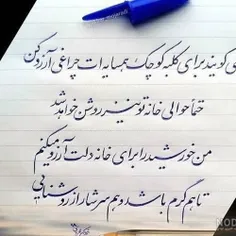 می گویند برای کلبه کوچک همسایه ات چراغی آرزو کن
حتما حوالی خانه تو نیز روشن خواهد شد
من خورشید را برای خانه دلت آرزو میکنم
تا هم گرم باشد و هم سرشار از روشنایی